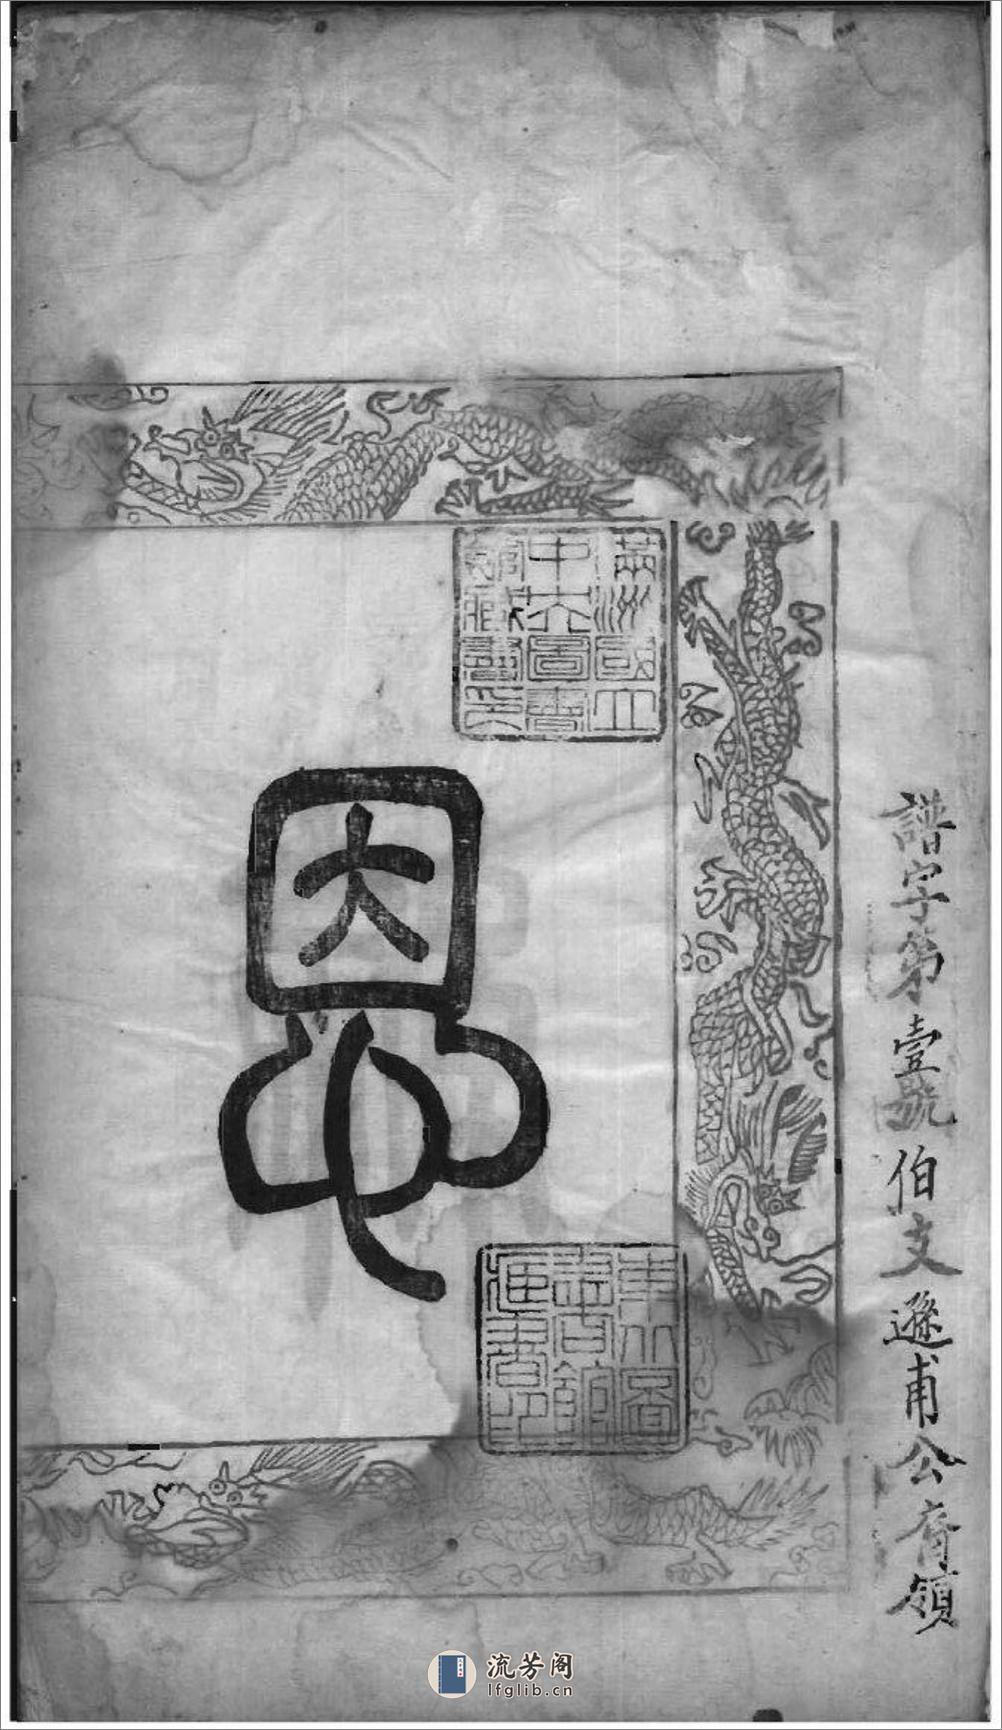 譜字第壹號伯文遜甫公裔領
滿洲國立
中央圖書
館藏書印
恩
東北圖
書館
藏書印
流芳阁
lfglib.cn